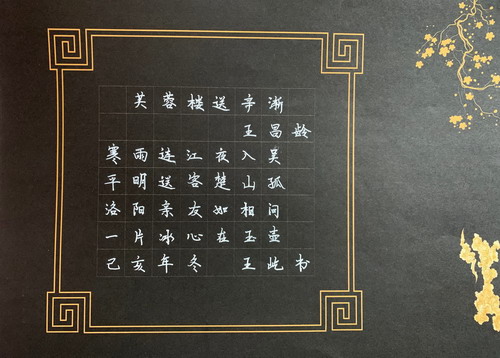 芙蓉楼送辛渐
王昌龄
寒雨连江夜入吴
平明送客楚山孤
洛阳亲友如相问
一片冰心在玉壶
己亥年冬 王屹书